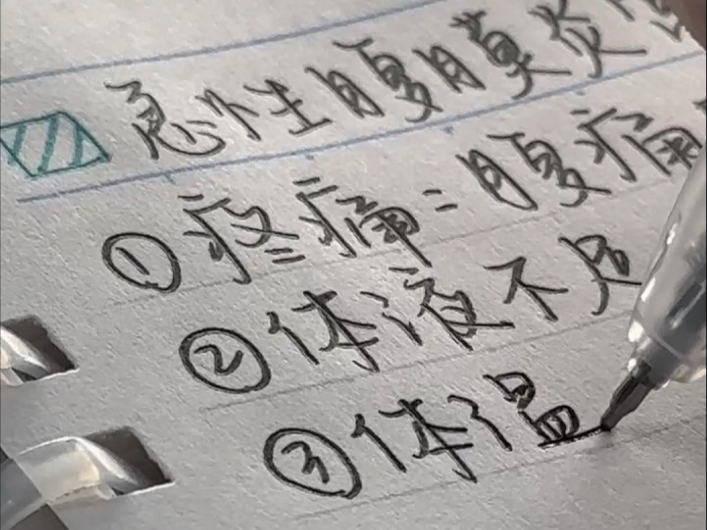 急性腹膜炎
①疼痛：腹痛
②体液不足
③体温